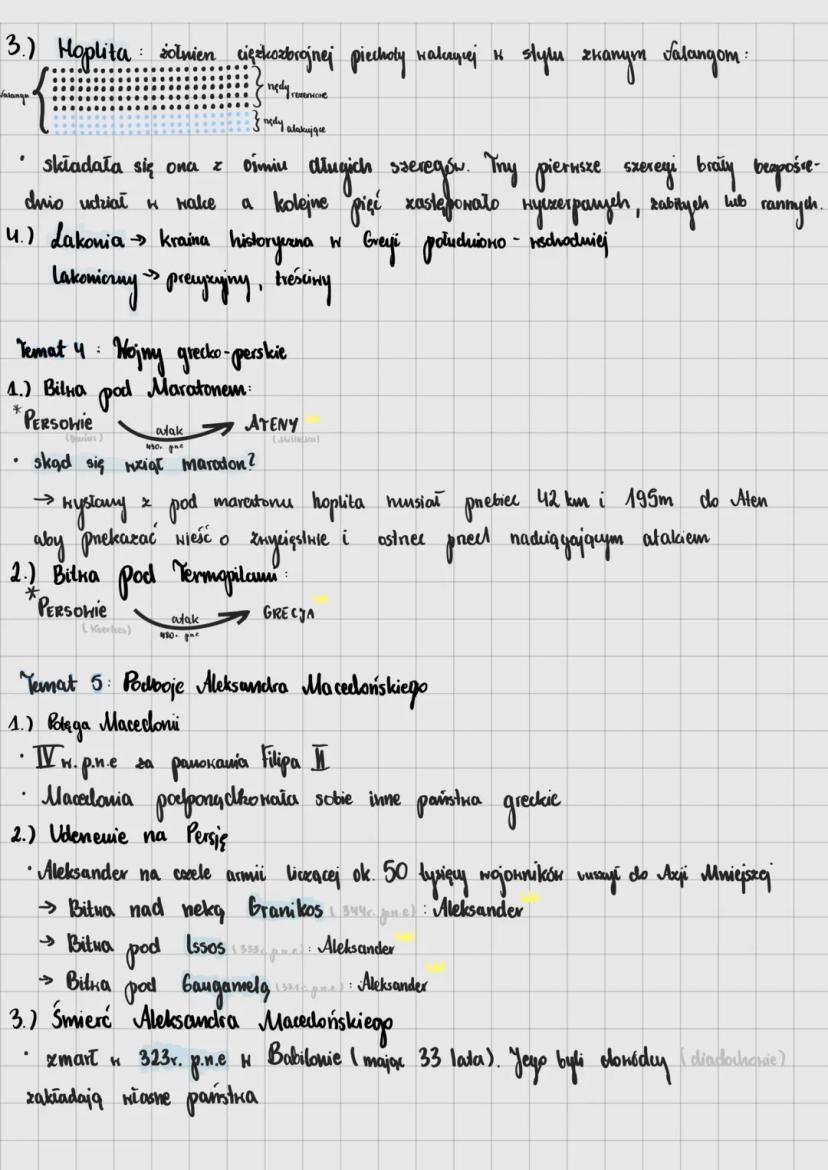 3.) Hoplita : żołnierz ciężkozbrojnej piechoty walczącej w stylu zwanym falangom :
falanga
rzędy rezerwowe
rzędy atakujące
• składała się ona z ośmiu długich szeregów. Trzy pierwsze szeregi brały bezpośre-
dnio udział w walce a kolejne pięć zastępowało wyczerpanych, zabitych lub rannych.
4.) Lakonia → kraina historyczna w Grecji południowo - wschodniej
Lakoniczny → precyzyjny, treściwy
Temat 4 : Wojny grecko-perskie
1.) Bitwa pod Maratonem:
*PERSOWIE atak ATENY
(Dariusz) 490r. p.n.e (Miltiades)
• skąd się wziął maraton?
→ wysłany z pod maratonu hoplita musiał przebiec 42 km i 195m do Aten
aby przekazać wieść o zwycięstwie i ostrzec przed nadciągającym atakiem
2.) Bitwa pod Termopilami :
*PERSOWIE atak GRECJA
(Kserkses) 480r. p.n.e
Temat 5: Podboje Aleksandra Macedońskiego
1.) Potęga Macedonii
• IV w. p.n.e za panowania Filipa II
• Macedonia podporządkowała sobie inne państwa greckie
2.) Uderzenie na Persję
• Aleksander na czele armii liczącej ok. 50 tysięcy wojowników ruszył do Azji Mniejszej
→ Bitwa nad rzeką Granikos (344r. p.n.e) : Aleksander
→ Bitwa pod Issos (333r. p.n.e) : Aleksander
→ Bitwa pod Gaugamelą (331r. p.n.e) : Aleksander
3.) Śmierć Aleksandra Macedońskiego
• zmarł w 323r. p.n.e w Babilonie (mając 33 lata). Jego byli dowódcy (diadochowie)
zakładają własne państwa